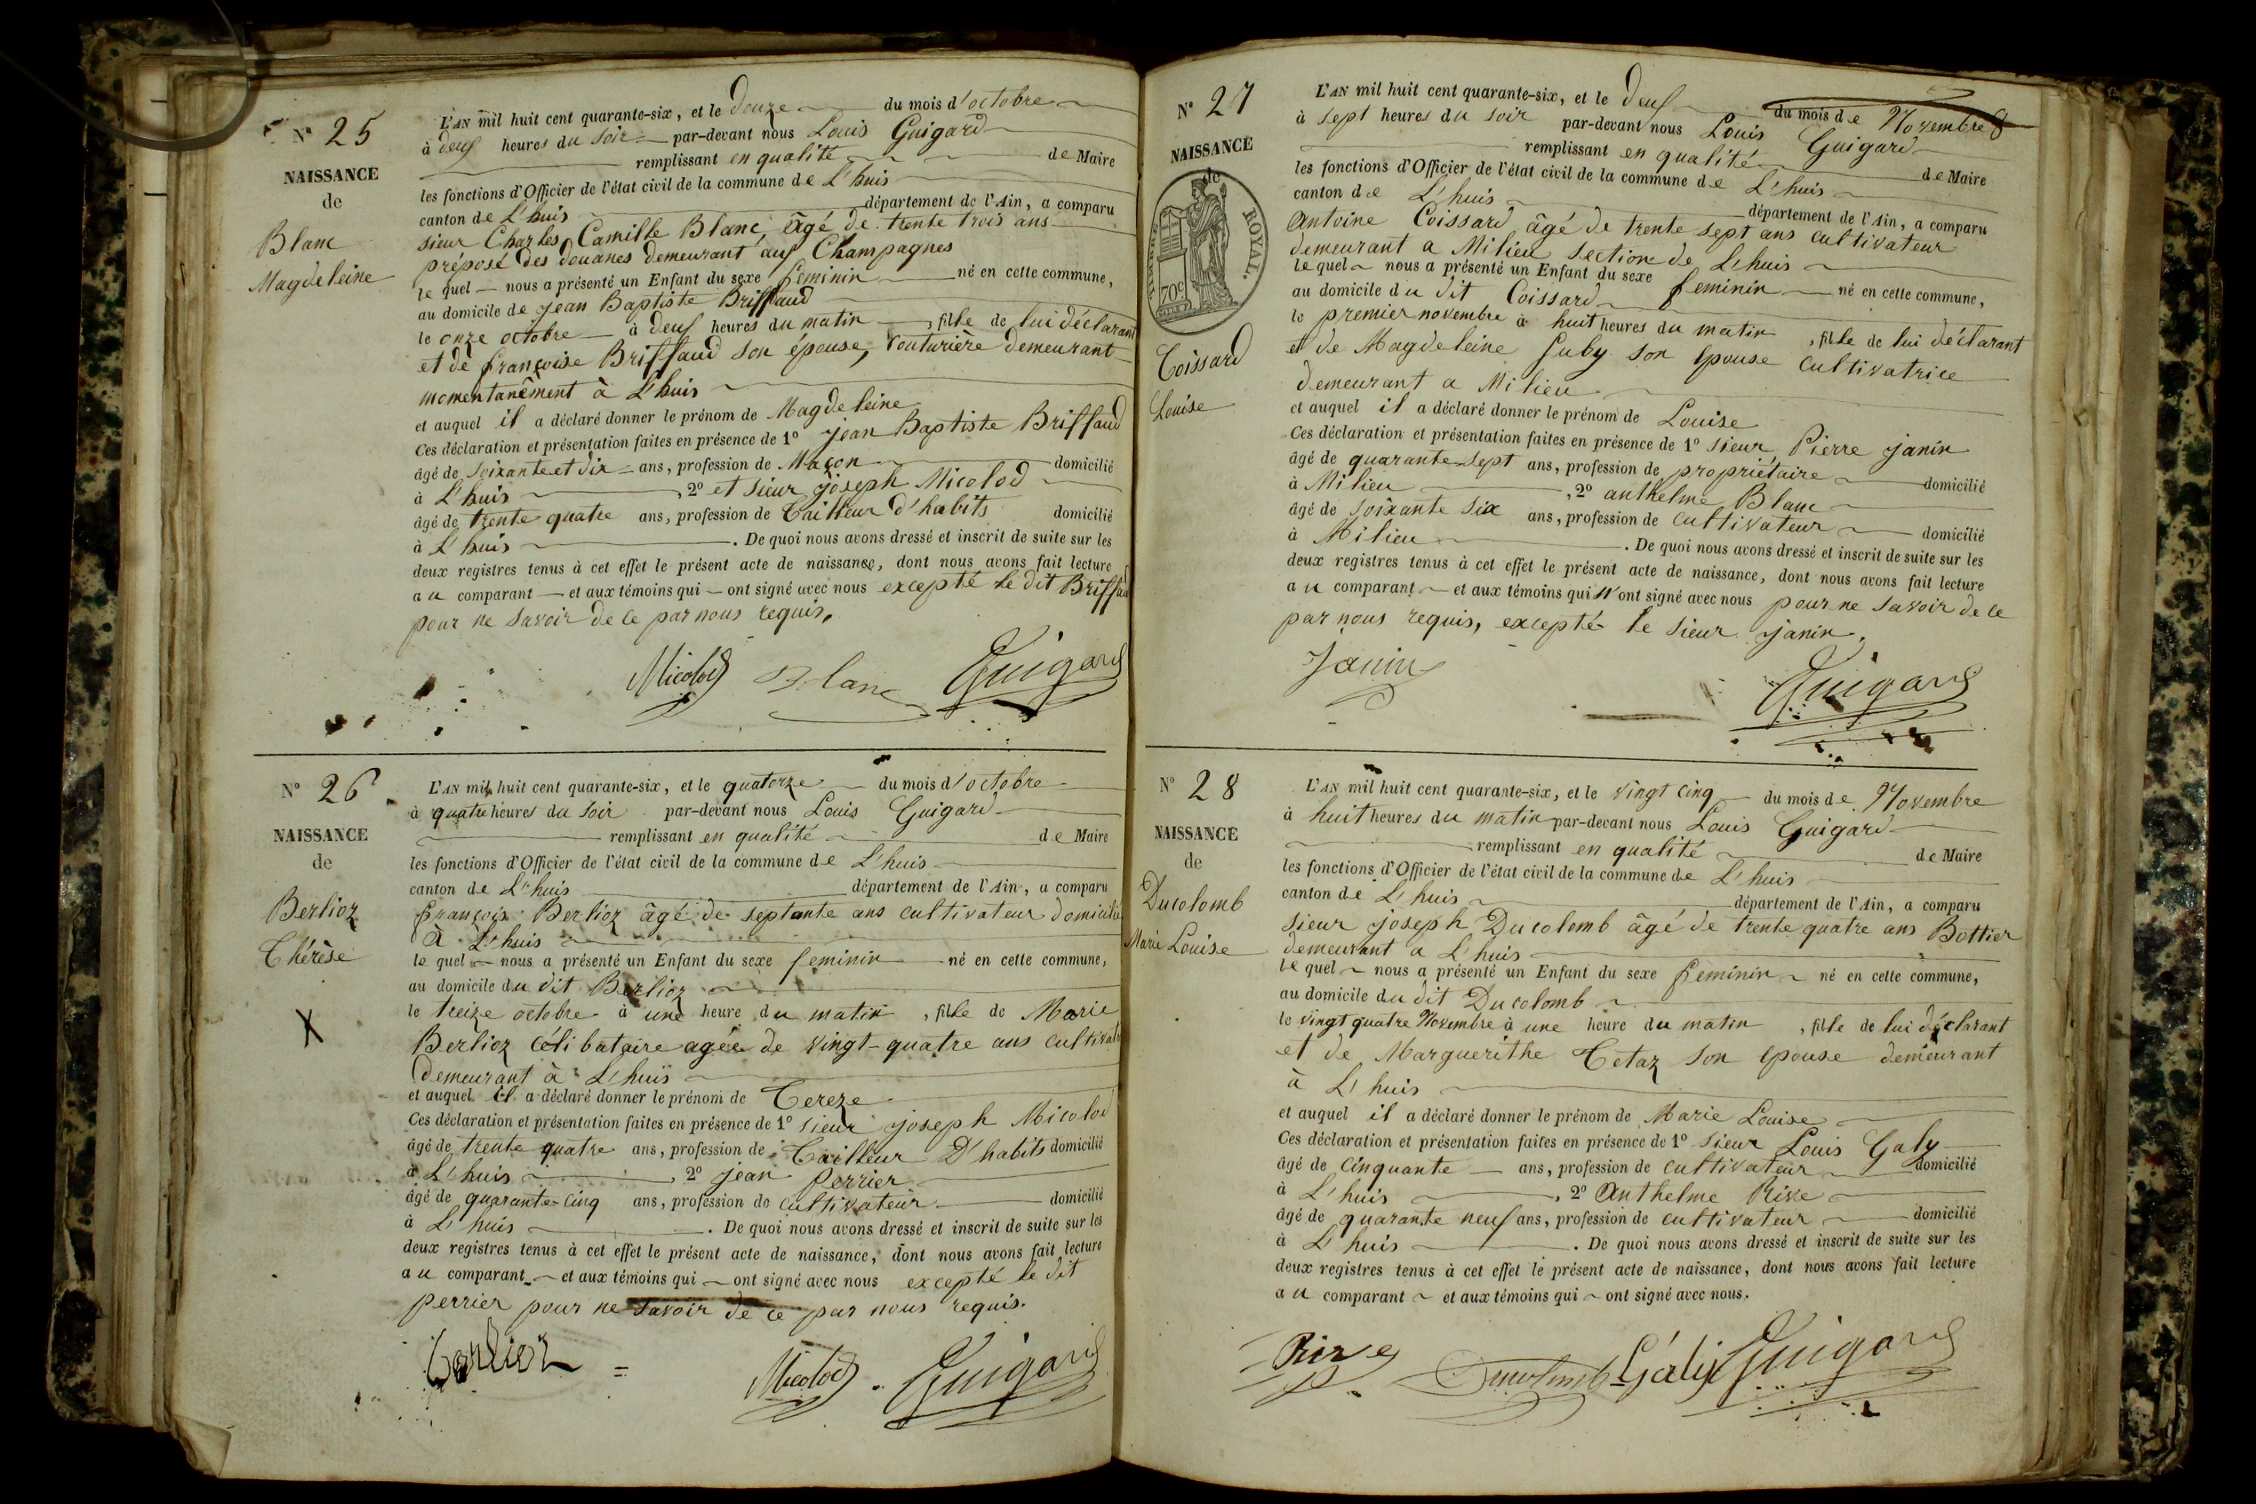 N° 25
NAISSANCE
de
Blanc
Magdeleine
L'AN mil huit cent quarante-six, et le douze du mois d'octobre
à deux heures du soir par-devant nous Louis Guigard
remplissant en qualité de Maire
les fonctions d'Officier de l'état civil de la commune de L'huis
canton de L'huis département de l'Ain, a comparu
sieur Charles Camille Blanc, âgé de trente trois ans
préposé des douanes demeurant aux Champagnes
le quel nous a présenté un Enfant du sexe feminin né en cette commune,
au domicile de jean Baptiste Briffaud
le onze octobre à deux heures du matin, fille de lui déclarant
et de françoise Briffaud son épouse, couturière demeurant
momentanément à L'huis
et auquel il a déclaré donner le prénom de Magdeleine
Ces déclaration et présentation faites en présence de 1° jean Baptiste Briffaud
âgé de soixante et dix ans, profession de Maçon domicilié
à L'huis, 2° et sieur joseph Micolod
âgé de trente quatre ans, profession de Tailleur d'habits domicilié
à L'huis. De quoi nous avons dressé et inscrit de suite sur les
deux registres tenus à cet effet le présent acte de naissance, dont nous avons fait lecture
au comparant et aux témoins qui ont signé avec nous excepté le dit Briffaud
pour ne savoir de ce par nous requis,
Micolod Blanc Guigard
N° 26
NAISSANCE
de
Berlioz
Thérèse
X
L'AN mil huit cent quarante-six, et le quatorze du mois d'octobre
à quatre heures du soir par-devant nous Louis Guigard
remplissant en qualité de Maire
les fonctions d'Officier de l'état civil de la commune de L'huis
canton de L'huis département de l'Ain, a comparu
françois Berlioz âgé de septante ans cultivateur domicilié
à L'huis
le quel nous a présenté un Enfant du sexe feminin né en cette commune,
au domicile du dit Berlioz
le treize octobre à une heure du matin, fille de Marie
Berlioz célibataire agée de vingt-quatre ans cultivatrice
demeurant à L'huis
et auquel il a déclaré donner le prénom de Tereze
Ces déclaration et présentation faites en présence de 1° sieur joseph Micolod
âgé de trente quatre ans, profession de Tailleur D'habits domicilié
à L'huis, 2° jean perrier
âgé de quarante-cinq ans, profession de cultivateur domicilié
à L'huis. De quoi nous avons dressé et inscrit de suite sur les
deux registres tenus à cet effet le présent acte de naissance, dont nous avons fait lecture
au comparant et aux témoins qui ont signé avec nous excepté le dit
perrier pour ne savoir de ce par nous requis.
Berlioz Micolod Guigard
N° 27
NAISSANCE
de
TIMBRE ROYAL.
70c
Coissard
Louise
L'AN mil huit cent quarante-six, et le deux du mois de Novembre
à sept heures du soir par-devant nous Louis Guigard
remplissant en qualité de Maire
les fonctions d'Officier de l'état civil de la commune de L'huis
canton de L'huis département de l'Ain, a comparu
Antoine Coissard âgé de trente sept ans cultivateur
demeurant a Milieu section de L'huis
le quel nous a présenté un Enfant du sexe feminin né en cette commune,
au domicile du dit Coissard
le premier novembre à huit heures du matin, fille de lui déclarant
et de Magdeleine Juby son épouse cultivatrice
demeurant a Milieu
et auquel il a déclaré donner le prénom de Louise
Ces déclaration et présentation faites en présence de 1° sieur Pierre janin
âgé de quarante-sept ans, profession de propriétaire domicilié
à Milieu, 2° anthelme Blanc
âgé de soixante six ans, profession de cultivateur domicilié
à Milieu. De quoi nous avons dressé et inscrit de suite sur les
deux registres tenus à cet effet le présent acte de naissance, dont nous avons fait lecture
au comparant et aux témoins qui n'ont signé avec nous pour ne savoir de ce
par nous requis, excepté le sieur janin,
Janin Guigard
N° 28
NAISSANCE
de
Ducolomb
Marie Louise
L'AN mil huit cent quarante-six, et le vingt cinq du mois de Novembre
à huit heures du matin par-devant nous Louis Guigard
remplissant en qualité de Maire
les fonctions d'Officier de l'état civil de la commune de L'huis
canton de L'huis département de l'Ain, a comparu
sieur joseph Ducolomb âgé de trente quatre ans Bottier
demeurant a L'huis
le quel nous a présenté un Enfant du sexe feminin né en cette commune,
au domicile du dit Ducolomb
le vingt quatre Novembre à une heure du matin, fille de lui déclarant
et de Marguerithe Tetaz son épouse demeurant
à L'huis
et auquel il a déclaré donner le prénom de Marie Louise
Ces déclaration et présentation faites en présence de 1° sieur Louis Galy
âgé de cinquante ans, profession de cultivateur domicilié
à L'huis, 2° Anthelme Rive
âgé de quarante neuf ans, profession de cultivateur domicilié
à L'huis. De quoi nous avons dressé et inscrit de suite sur les
deux registres tenus à cet effet le présent acte de naissance, dont nous avons fait lecture
au comparant et aux témoins qui ont signé avec nous.
Rive Ducolomb Galy Guigard